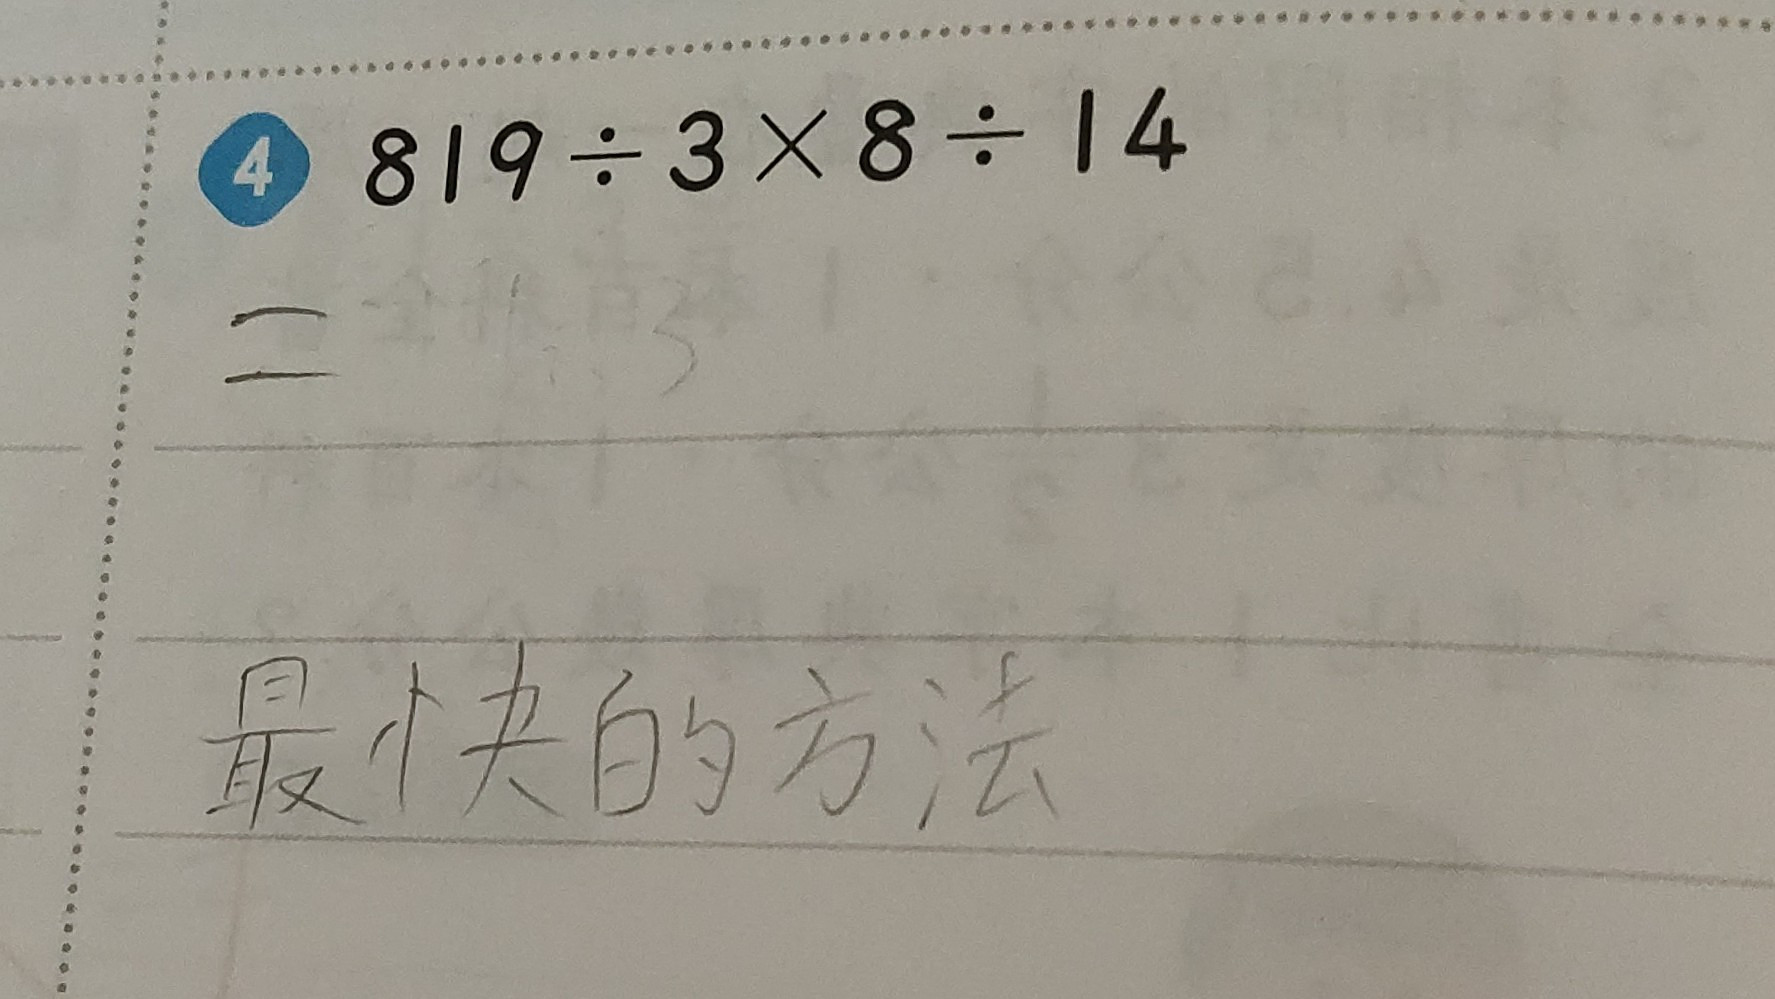 4 819÷3×8÷14
=
最快的方法